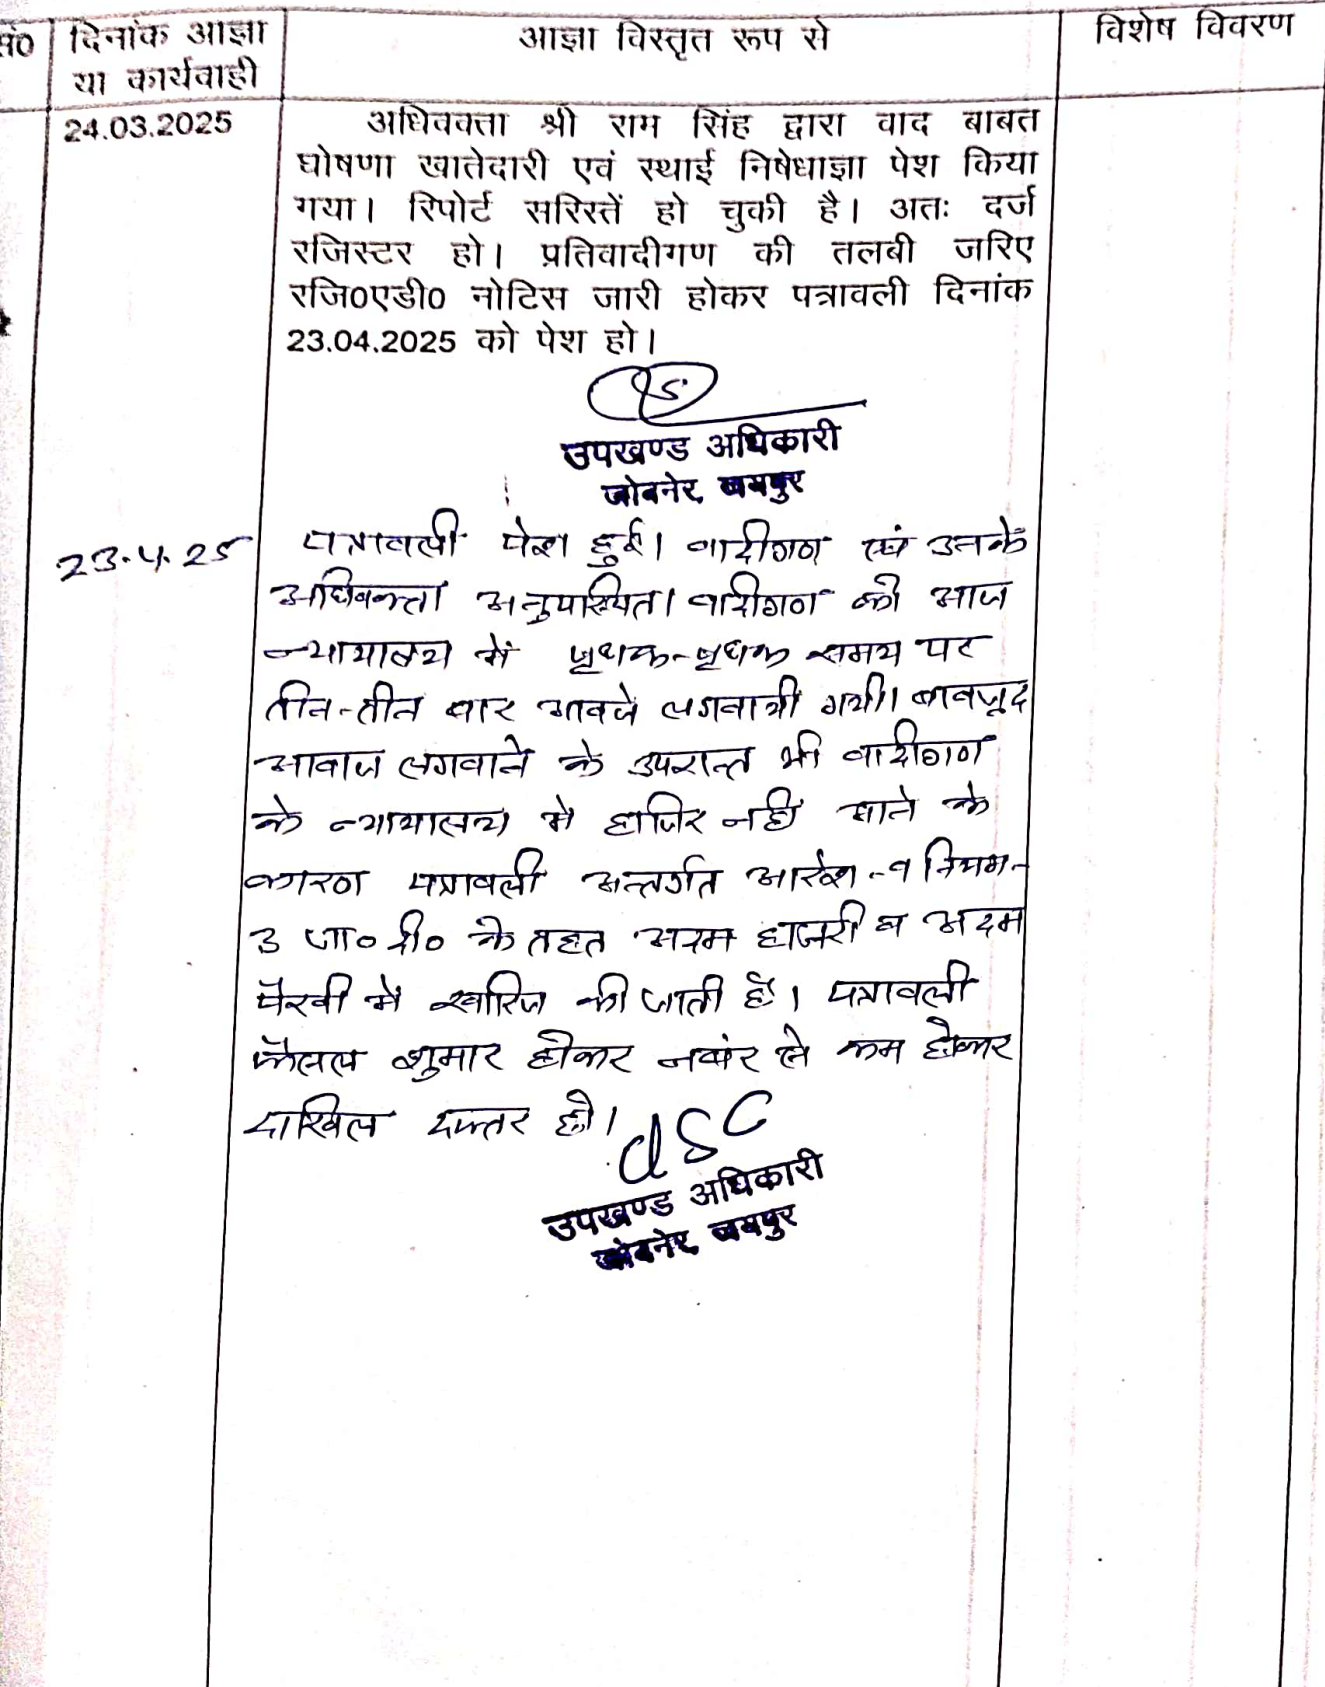 सं0 दिनांक आज्ञा या कार्यवाही आज्ञा विस्तृत रूप से विशेष विवरण
24.03.2025 अधिवक्ता श्री राम सिंह द्वारा वाद बाबत
घोषणा खातेदारी एवं स्थाई निषेधाज्ञा पेश किया
गया। रिपोर्ट सरिस्तें हो चुकी है। अतः दर्ज
रजिस्टर हो। प्रतिवादीगण की तलबी जरिए
रजि0एडी0 नोटिस जारी होकर पत्रावली दिनांक
23.04.2025 को पेश हो।
उपखण्ड अधिकारी
जोबनेर, जयपुर
23.4.25 पत्रावली पेश हुई। वादीगण एवं उनके
अधिवक्ता अनुपस्थित। वादीगण को आज
न्यायालय में पृथक-पृथक समय पर
तीन-तीन बार आवजे लगवायी गयी। बावजूद
आवाज लगवाने के उपरान्त भी वादीगण
के न्यायालय में हाजिर नही आने के
कारण पत्रावली अन्तर्गत आदेश-9 नियम-
3 जा० दी० के तहत अदम हाजरी व अदम
पैरवी में खारिज की जाती है। पत्रावली
फैसल शुमार होकर नम्बर से कम होकर
दाखिल दफ्तर हो।
उपखण्ड अधिकारी
जोबनेर, जयपुर